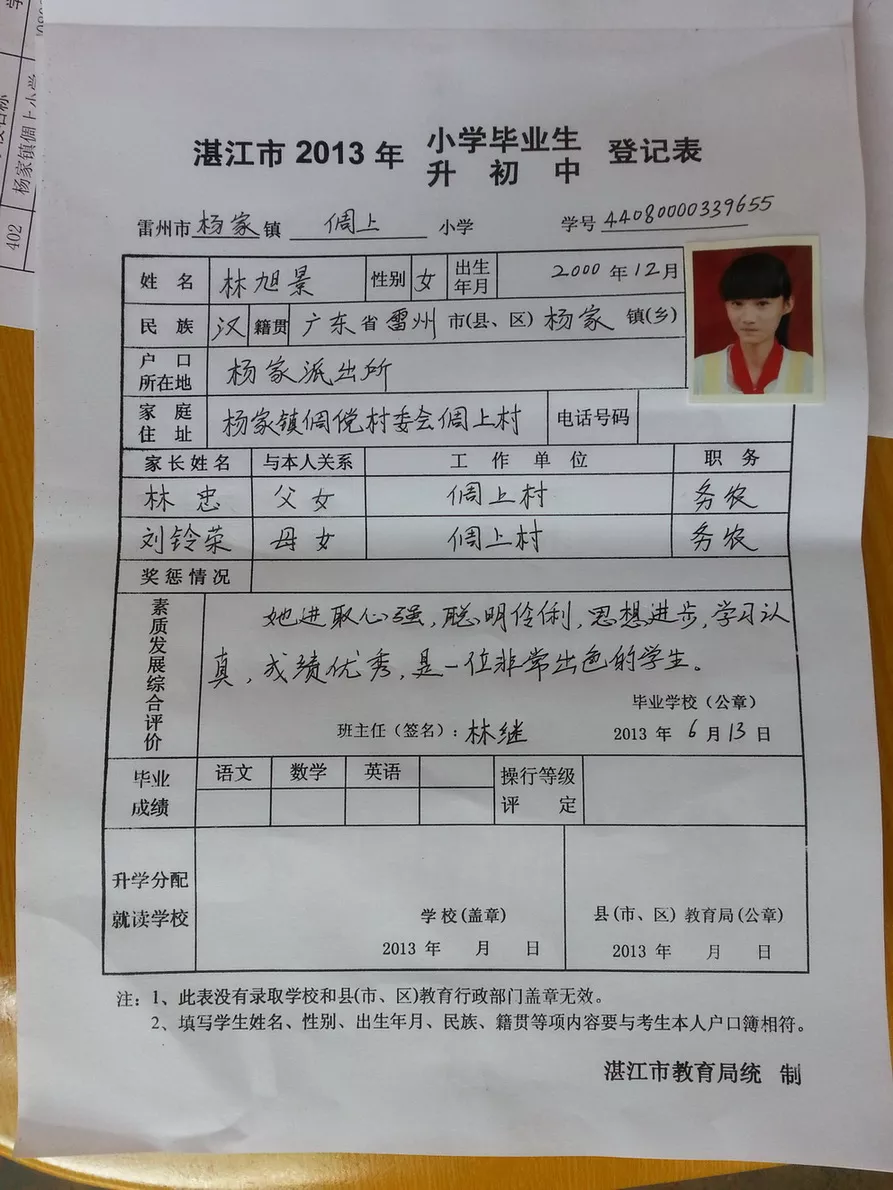 湛江市 2013 年 小学毕业生 登记表
升 初 中
雷州市 杨家 镇 倜上 小学 学号 44080000339655
姓 名 林旭景 性别 女 出生年月 2000 年 12 月
民 族 汉 籍贯 广东 省 雷州 市(县、区) 杨家 镇(乡)
户 口 所在地 杨家派出所
家 庭 住 址 杨家镇倜傥村委会倜上村 电话号码
家长姓名 与本人关系 工 作 单 位 职 务
林 忠 父女 倜上村 务农
刘铃荣 母女 倜上村 务农
奖惩情况
素质发展综合评价
她进取心强,聪明伶俐,思想进步,学习认
真,成绩优秀,是一位非常出色的学生。
毕业学校(公章)
班主任(签名):林继 2013 年 6 月 13 日
毕业成绩 语文 数学 英语 操行等级评 定
升学分配
就读学校
学校(盖章) 县(市、区)教育局(公章)
2013 年 月 日 2013 年 月 日
注:1、此表没有录取学校和县(市、区)教育行政部门盖章无效。
2、填写学生姓名、性别、出生年月、民族、籍贯等项内容要与考生本人户口簿相符。
湛江市教育局统 制
402
杨家镇倜上小学